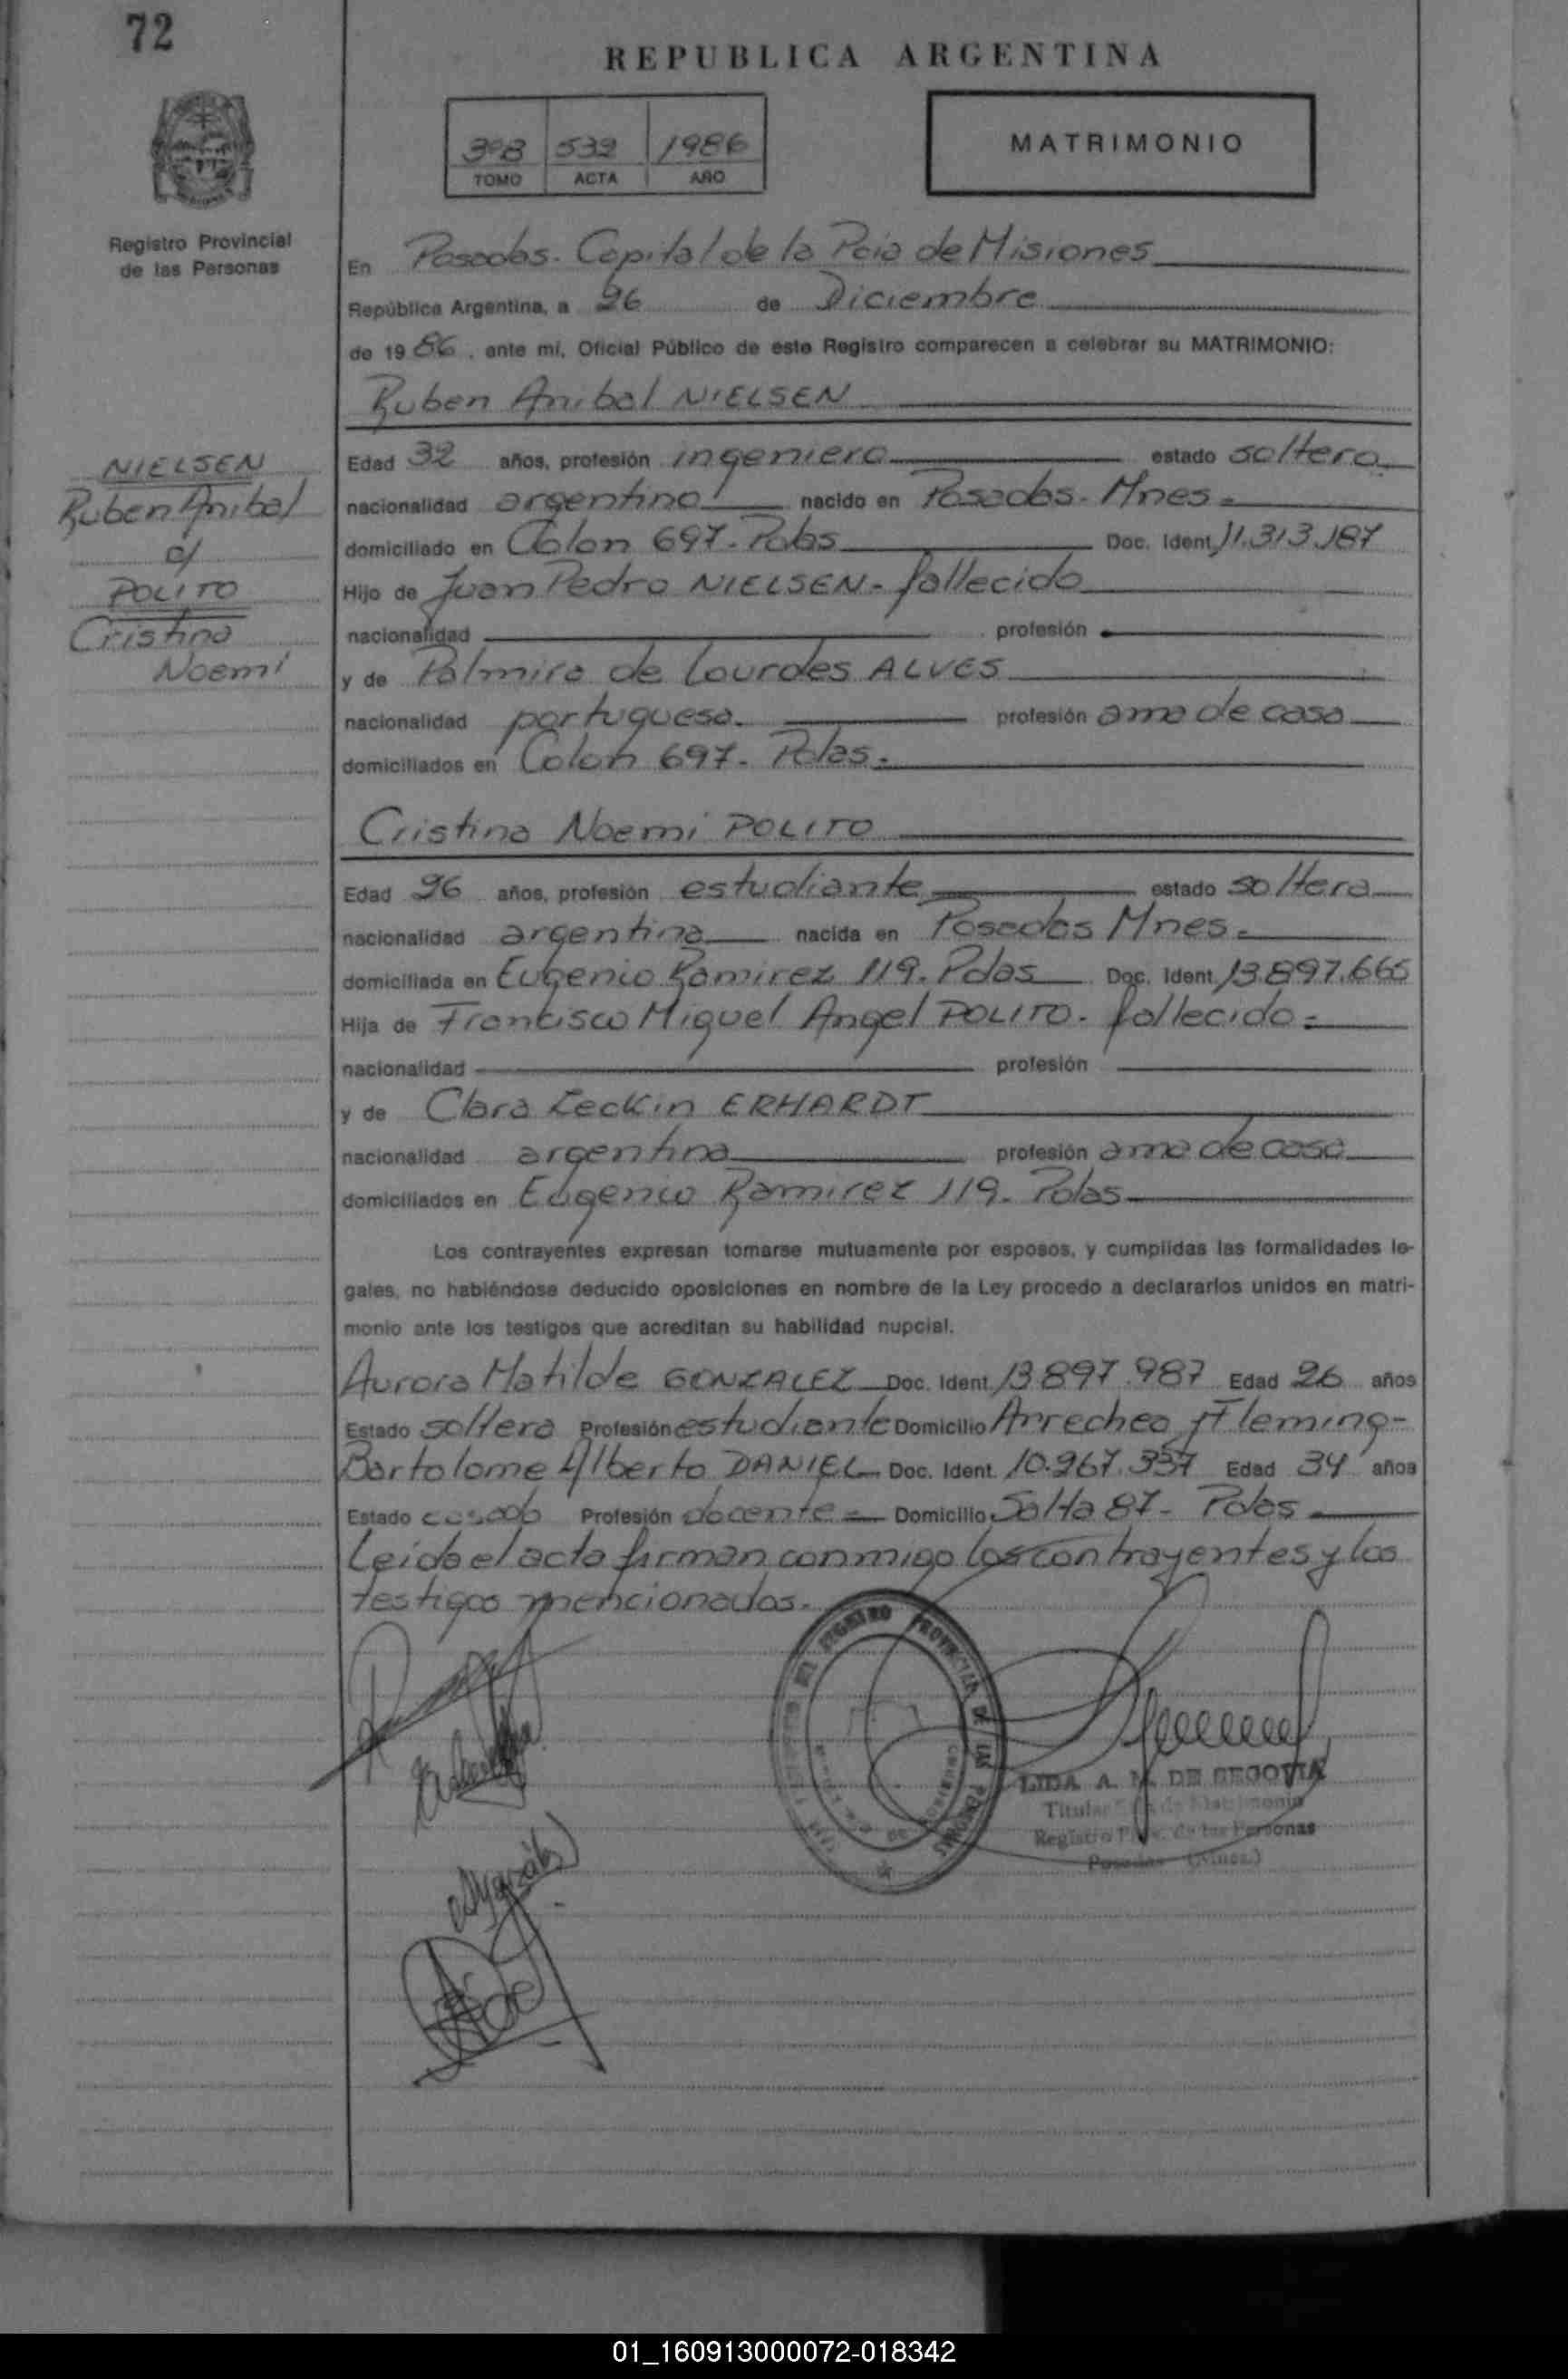 72
REPUBLICA ARGENTINA
3ºB 532 1986
TOMO ACTA AÑO
MATRIMONIO
Registro Provincial
de las Personas
En Posadas. Capital de la Pcia de Misiones
República Argentina, a 26 de Diciembre
de 1986, ante mí, Oficial Público de este Registro comparecen a celebrar su MATRIMONIO:
Ruben Anibal NIELSEN
NIELSEN
Ruben Anibal
c/
POLITO
Cristina
Noemi
Edad 32 años, profesión ingeniero estado soltero
nacionalidad argentino nacido en Posadas - Mnes -
domiciliado en Colon 697 - Pdas Doc. Ident. 11.313.187
Hijo de Juan Pedro NIELSEN - fallecido
nacionalidad profesión
y de Palmira de Lourdes ALVES
nacionalidad portuguesa. profesión ama de casa
domiciliados en Colon 697 - Pdas.
Cristina Noemi POLITO
Edad 26 años, profesión estudiante estado soltera
nacionalidad argentina nacida en Posadas Mnes.
domiciliada en Eugenio Ramirez 119. Pdas Doc. Ident. 13.897.665
Hija de Francisco Miguel Angel POLITO - fallecido -
nacionalidad profesión
y de Clara Leckin ERHARDT
nacionalidad argentina profesión ama de casa
domiciliados en Eugenio Ramirez 119. Pdas
Los contrayentes expresan tomarse mutuamente por esposos, y cumplidas las formalidades le-
gales, no habiéndose deducido oposiciones en nombre de la Ley procedo a declararlos unidos en matri-
monio ante los testigos que acreditan su habilidad nupcial.
Aurora Matilde GONZALEZ Doc. Ident. 13.897.987 Edad 26 años
Estado soltera Profesión estudiante Domicilio Arrechea y Fleming -
Bartolome Alberto DANIEL Doc. Ident. 10.267.337 Edad 34 años
Estado casado Profesión docente - Domicilio Salta 87 - Pdas
Leida el acta firman conmigo los contrayentes y los
testigos mencionados.
REGISTRO PROVINCIAL DE LAS PERSONAS
LIDA A. M. DE SEGOVIA
Titular de Matrimonio
Registro Prov. de las Personas
Posadas (Mnes.)
01_160913000072-018342